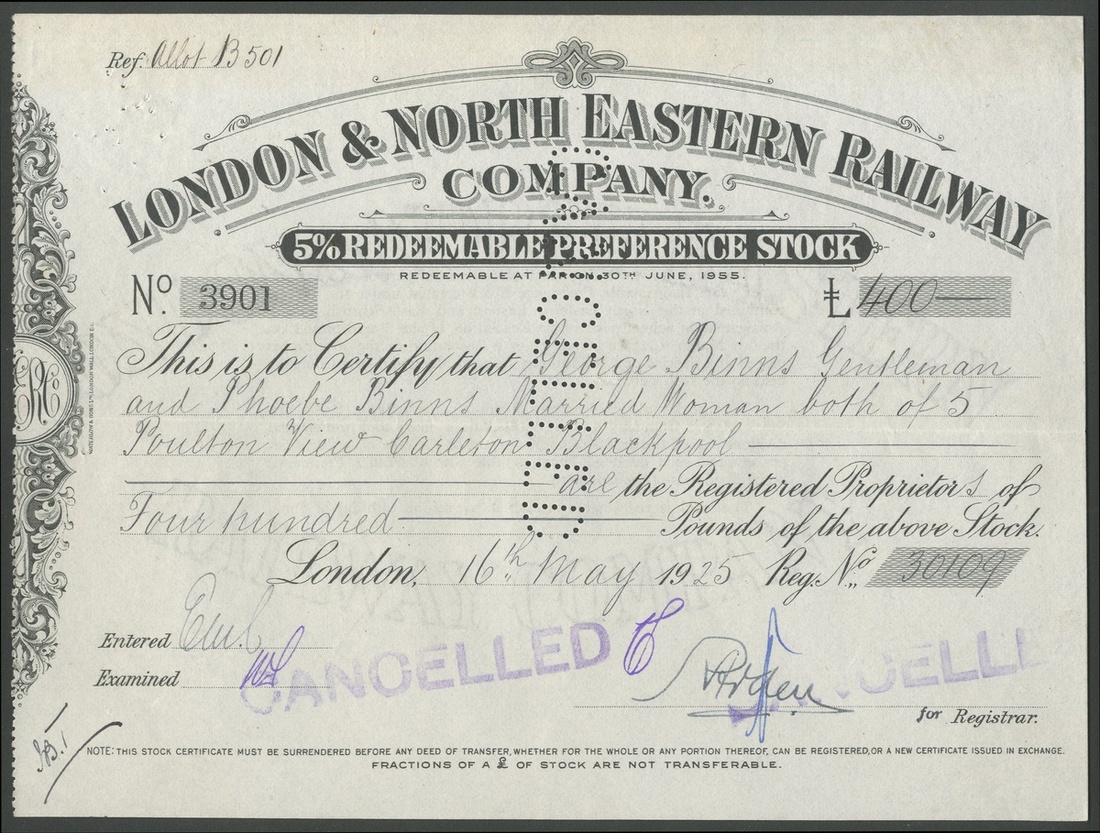 Ref. Allot B 501
LONDON & NORTH EASTERN RAILWAY
COMPANY.
5% REDEEMABLE PREFERENCE STOCK
REDEEMABLE AT PAR ON 30TH JUNE, 1955.
No 3901
£ 400
This is to Certify that George Binns Gentleman
and Phoebe Binns Married Woman both of 5
Poulton View Carleton Blackpool
are the Registered Proprietors of
Four hundred Pounds of the above Stock.
London, 16th May 1925 Reg. No. 30109
CANCELLED
Entered
Examined
CANCELLED
CANCELL
for Registrar.
NOTE: THIS STOCK CERTIFICATE MUST BE SURRENDERED BEFORE ANY DEED OF TRANSFER, WHETHER FOR THE WHOLE OR ANY PORTION THEREOF, CAN BE REGISTERED, OR A NEW CERTIFICATE ISSUED IN EXCHANGE.
FRACTIONS OF A £ OF STOCK ARE NOT TRANSFERABLE.